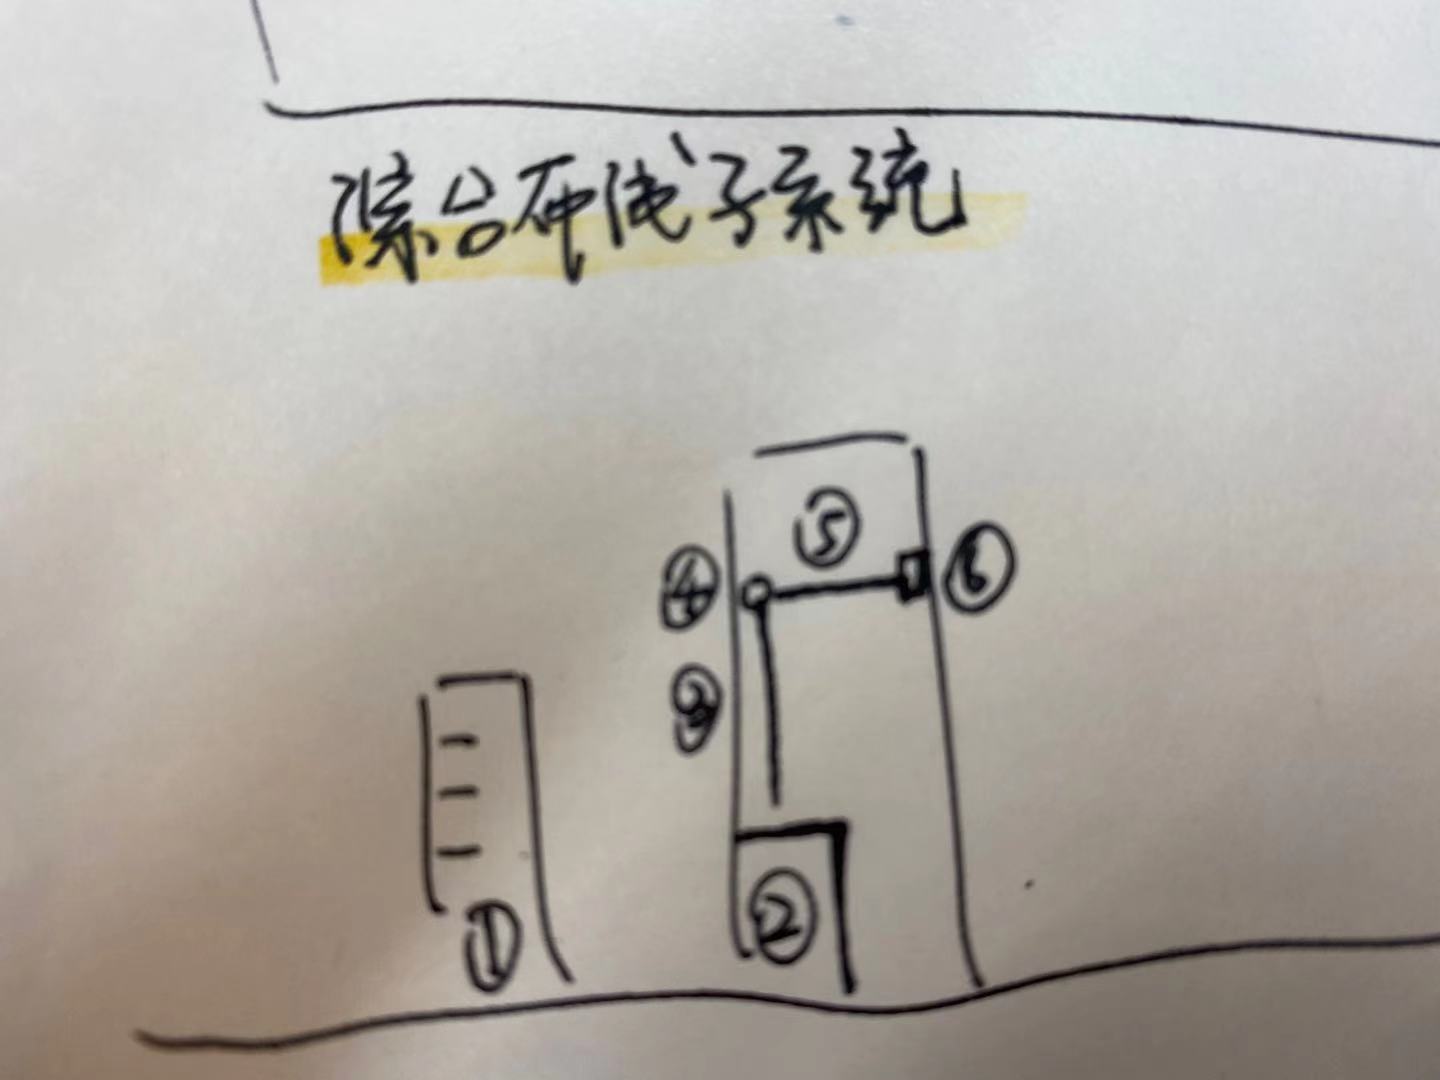 综合布线子系统
⑤
④ ⑥
③
②
①